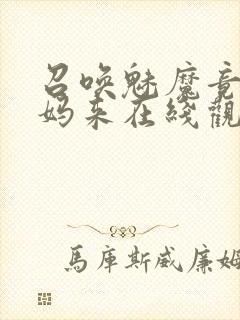 召唤魅魔竟
妈来在线觀
馬庫斯威廉姆